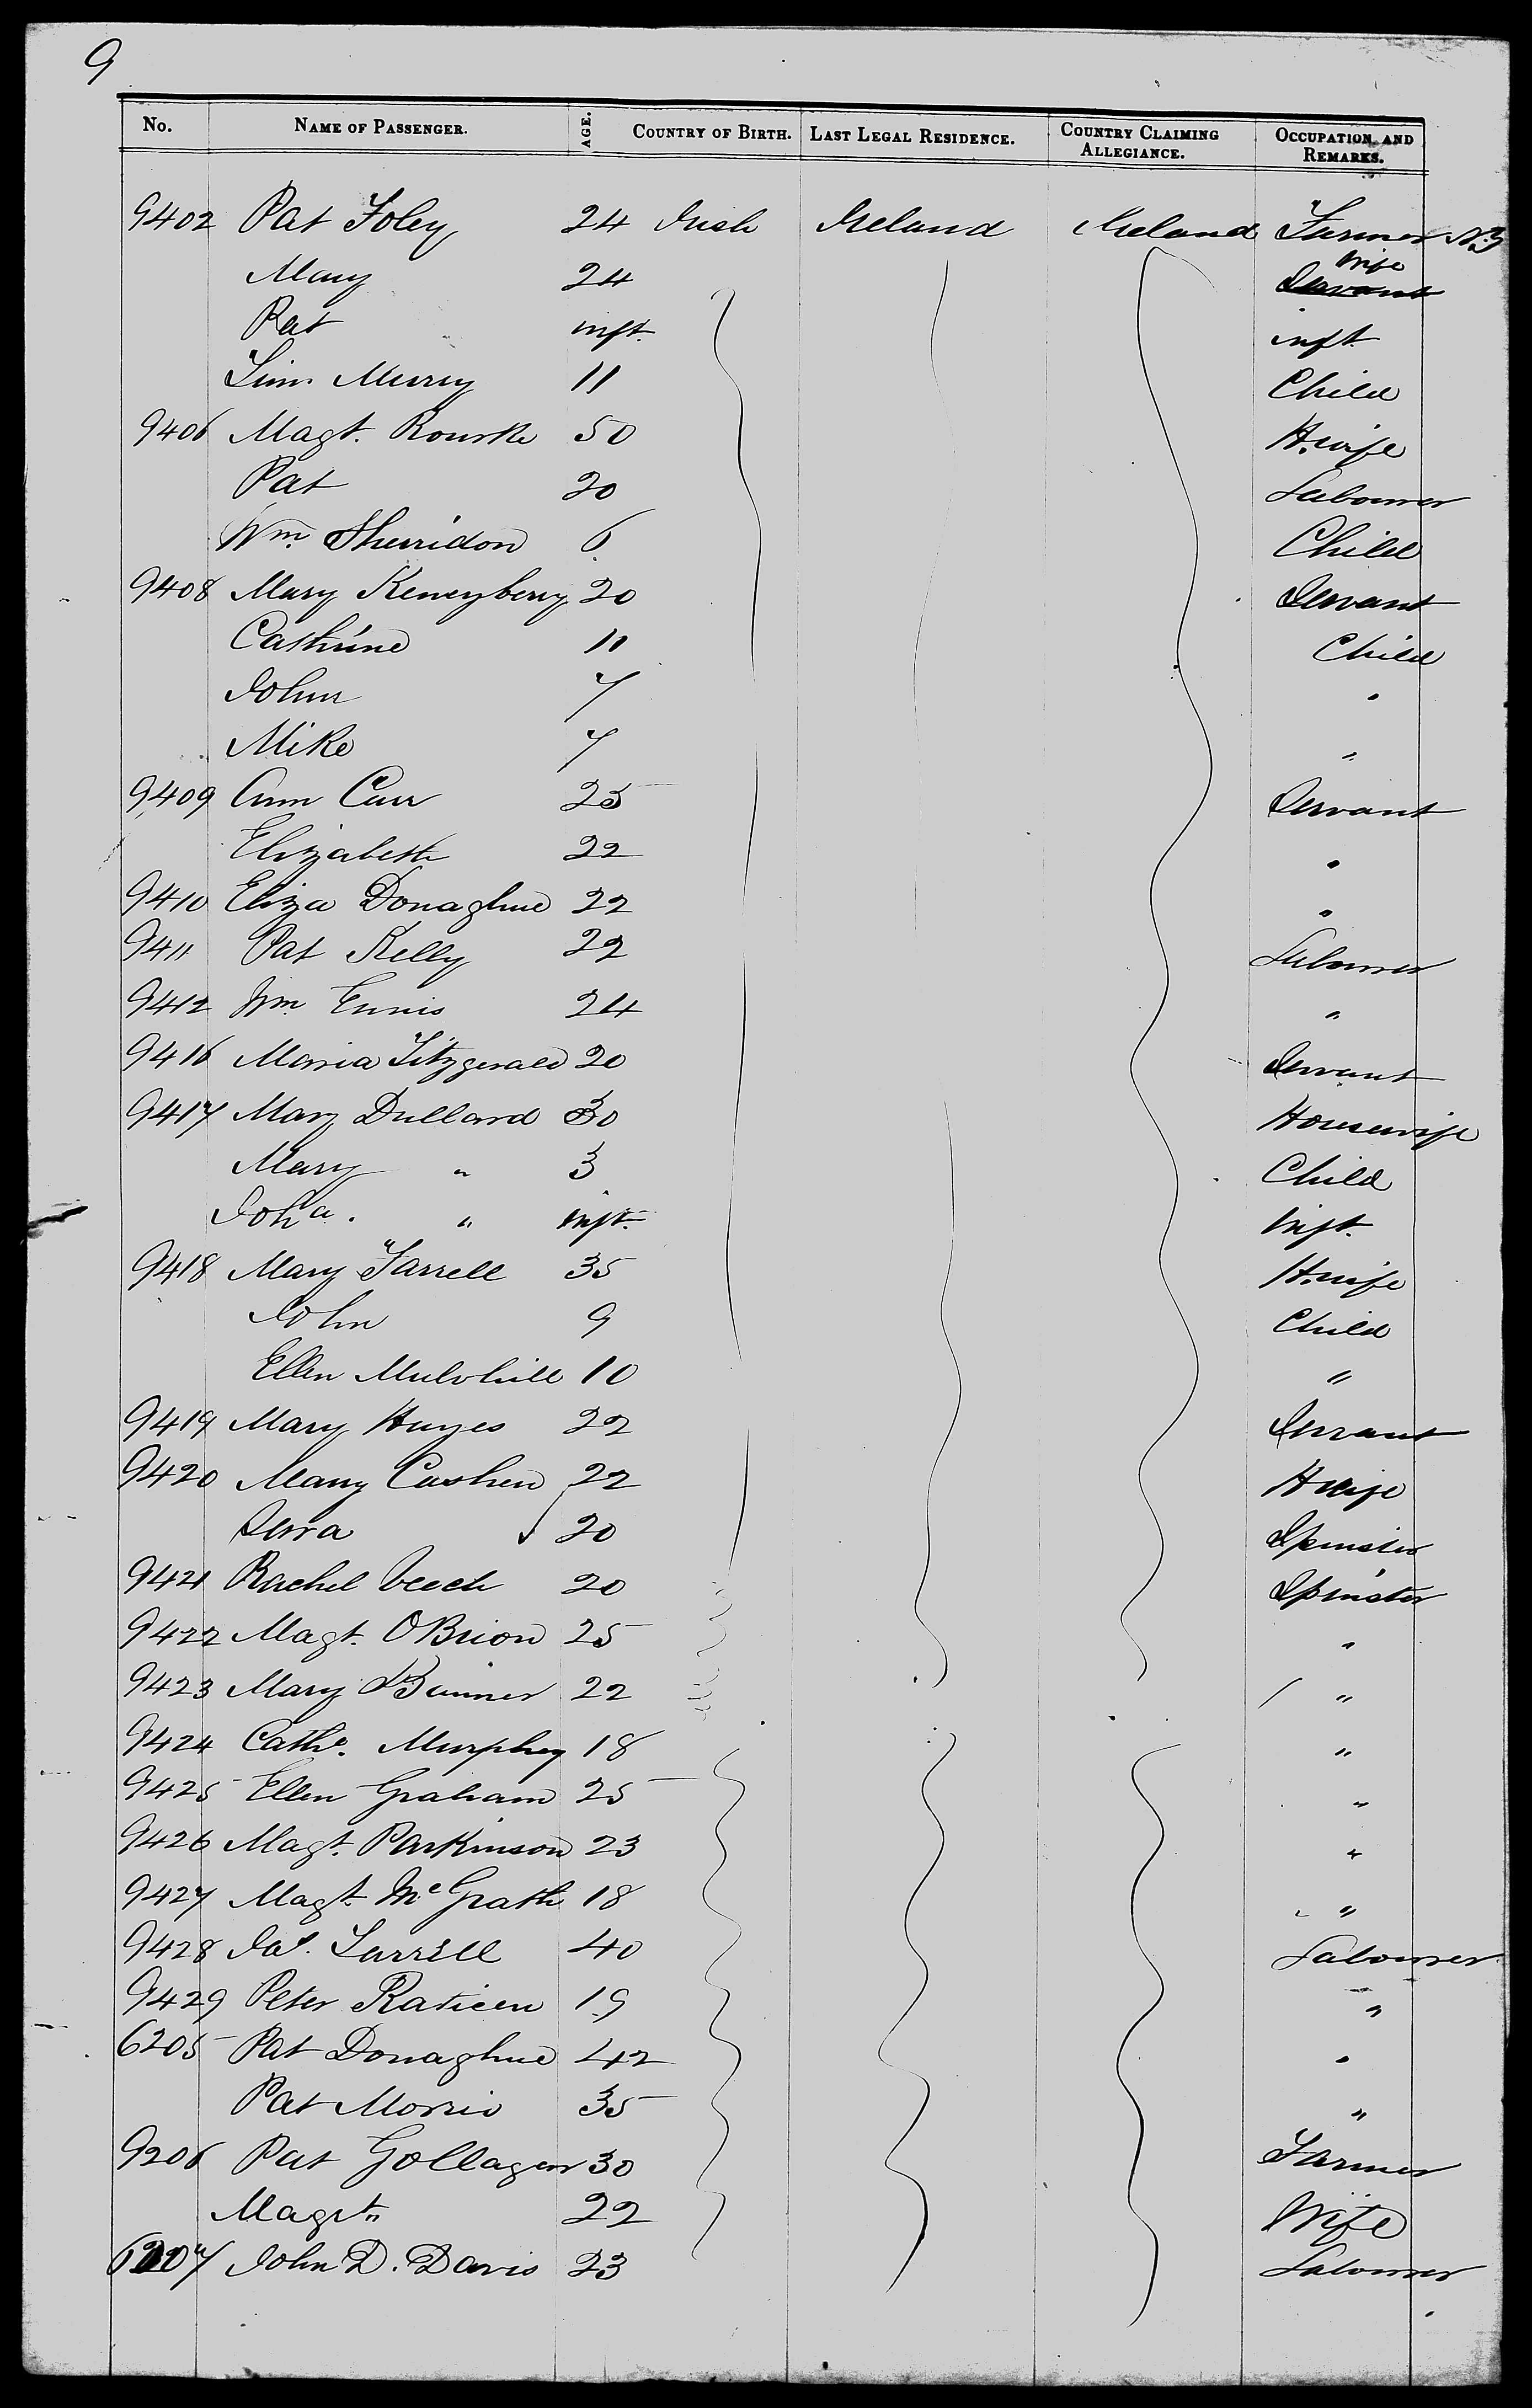 9
No. NAME OF PASSENGER. AGE. COUNTRY OF BIRTH. LAST LEGAL RESIDENCE. COUNTRY CLAIMING ALLEGIANCE. OCCUPATION AND REMARKS.
9402 Pat Foley 24 Irish Ireland Ireland Farmer
Mary 24 Servant Wife
Pat inft. inft.
Murry 11 Child
9406 Magt. Rourke 50 H.wife
Pat 20 Labourer
Wm. Sherridon 6 Child
9408 Mary 20 Servant
Cathrine 11 Child
John 7 "
Mike 7 "
9409 Ann Carr 25 Servant
Elizabeth 22 "
9410 Eliza Donaghue 22 "
9411 Pat Kelly 22 Labourer
9412 Wm. Ennis 24 "
9416 Morria Fitzgerald 20 Servant
9417 Mary Dullard 30 Housewife
Mary " 3 Child
Joha. " inft. inft.
9418 Mary Farrell 35 H.wife
John 9 Child
Ellen Mulvhill 10 "
9419 Mary Hayes 22 Servant
9420 Mary Cashen 22 H wife
20 Spinster
9421 Rachel Veech 20 Spinster
9422 Magt. OBrion 25 "
9423 Mary 22 "
9424 Cathe. Murphy 18 "
9425 Ellen Graham 25 "
9426 Magt. Parkinson 23 "
9427 Magt. McGrath 18 "
9428 Jas. Farrell 40 Labourer
9429 Peter 19 "
6205 Pat Donaghue 42 "
Pat Morris 35 "
9206 Pat Gollagen 30 Farmer
Magt. 22 Wife
6207 John D. Davis 23 Labourer